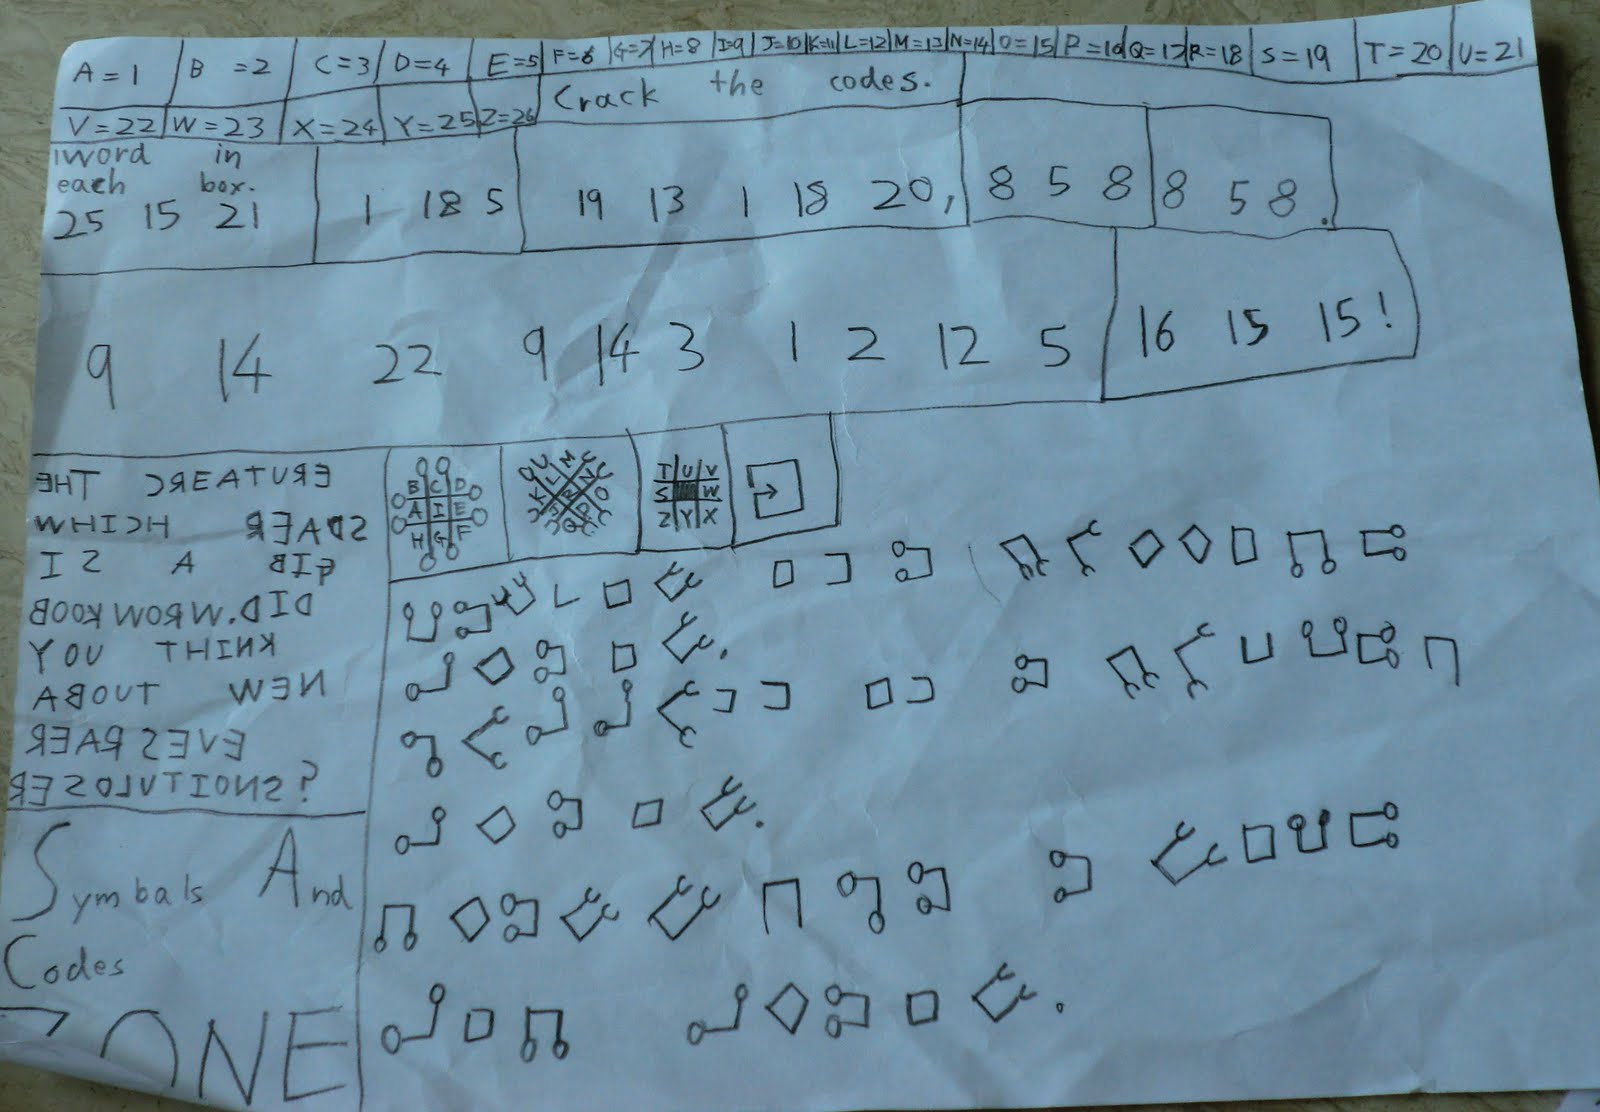 A=1 B=2 C=3 D=4 E=5 F=6 G=7 H=8 I=9 J=10 K=11 L=12 M=13 N=14 O=15 P=16 Q=17 R=18 S=19 T=20 U=21
V=22 W=23 X=24 Y=25 Z=26 Crack the codes.
1word in
each box.
25 15 21 1 18 5 19 13 1 18 20, 8 5 8 8 5 8.
9 14 22 9 14 3 1 2 12 5 16 15 15!
EHT CREATURE
WHICH READS
IS A BIG
BOOKWORM. DID
YOU THINK
ABOUT NEW
REAR SEVE
RESOLUTIONS?
B C D
A I E
H G F
L M
K N
J R O
Q P
T U V
S W
Z Y X
Symbals And
Codes
ZONE